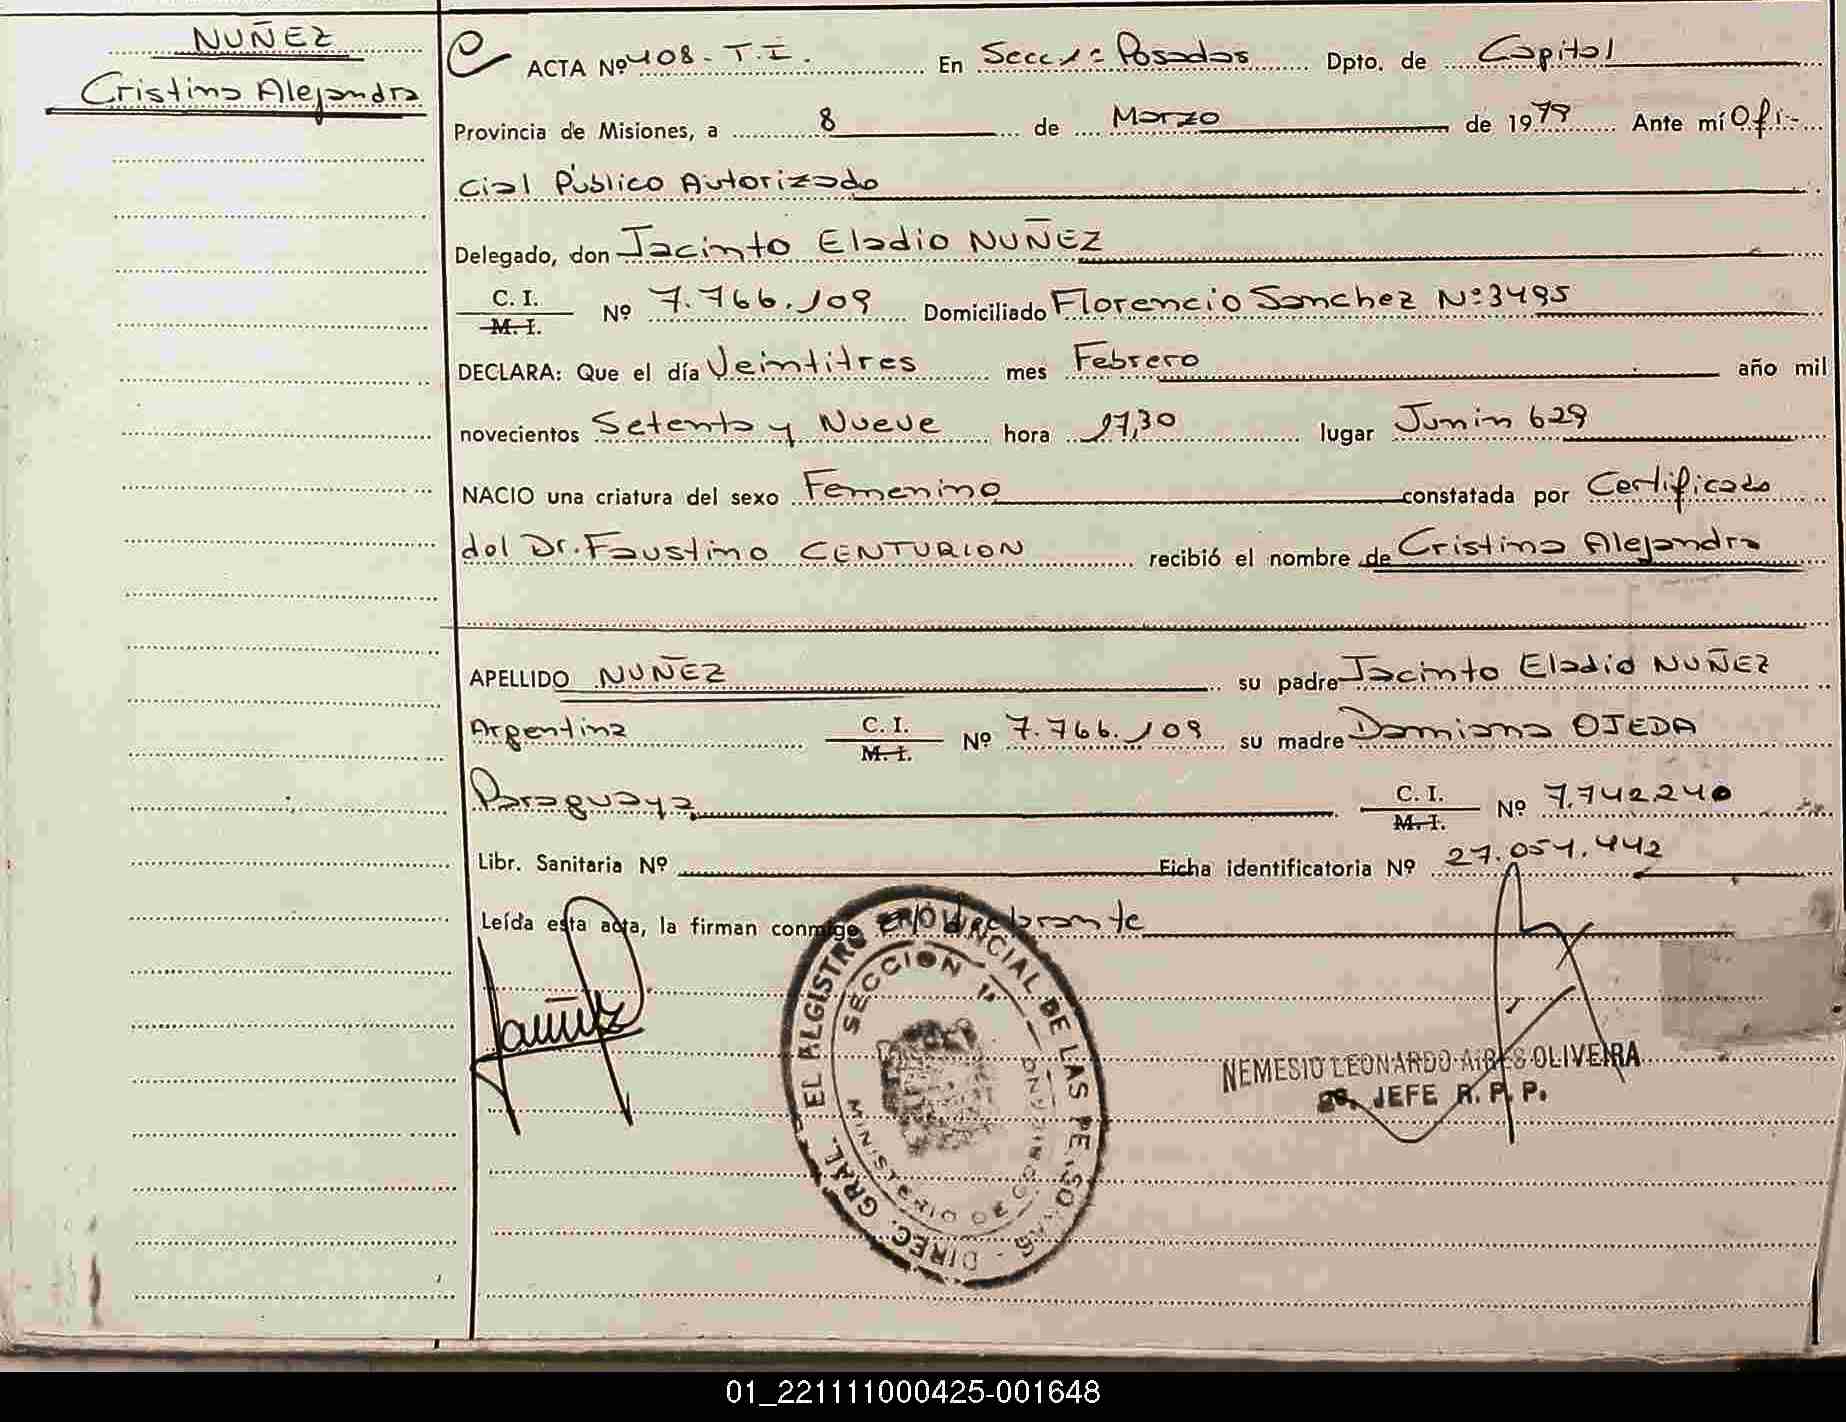 NUÑEZ
Cristina Alejandra
ACTA Nº 408 - T.I. En Secc 1ª Posadas Dpto. de Capital
Provincia de Misiones, a 8 de Marzo de 1979 Ante mí Ofi-
cial Público Autorizado
Delegado, don Jacinto Eladio NUÑEZ
C. I.
M. I. Nº 7.766.109 Domiciliado Florencio Sanchez Nº 3495
DECLARA: Que el día Veintitres mes Febrero año mil
novecientos Setenta y Nueve hora 17,30 lugar Junin 629
NACIO una criatura del sexo Femenino constatada por Certificado
del Dr. Faustino CENTURION recibió el nombre de Cristina Alejandra
APELLIDO NUÑEZ su padre Jacinto Eladio NUÑEZ
Argentina C. I.
M. I. Nº 7.766.109 su madre Damiana OJEDA
Paraguaya C. I.
M. I. Nº 7.742.240
Libr. Sanitaria Nº Ficha identificatoria Nº 27.051.442
Leída esta acta, la firman conmigo el declarante
DIREC. GRAL. EL REGISTRO PROVINCIAL DE LAS PERSONAS
SECCION 1ª
MINISTERIO DE GOBIERNO
NEMESIO LEONARDO AIRES OLIVEIRA
JEFE R. P. P.
01_221111000425-001648